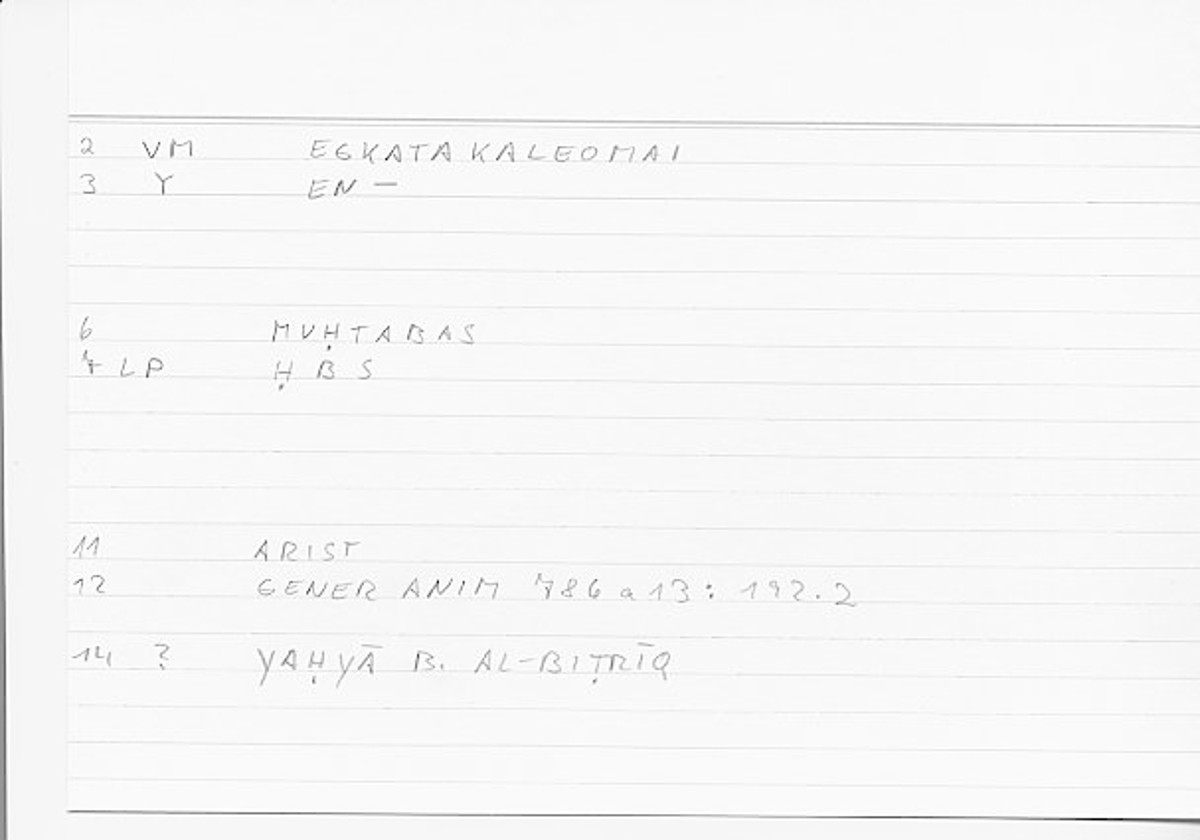 2 VM EGKATAKALEOMAI
3 Y EN —
6 MUḤTABAS
7 LP Ḥ B S
11 ARIST
12 GENER ANIM 786 a 13 : 192.2
14 ? YAḤYĀ B. AL-BIṬRĪQ